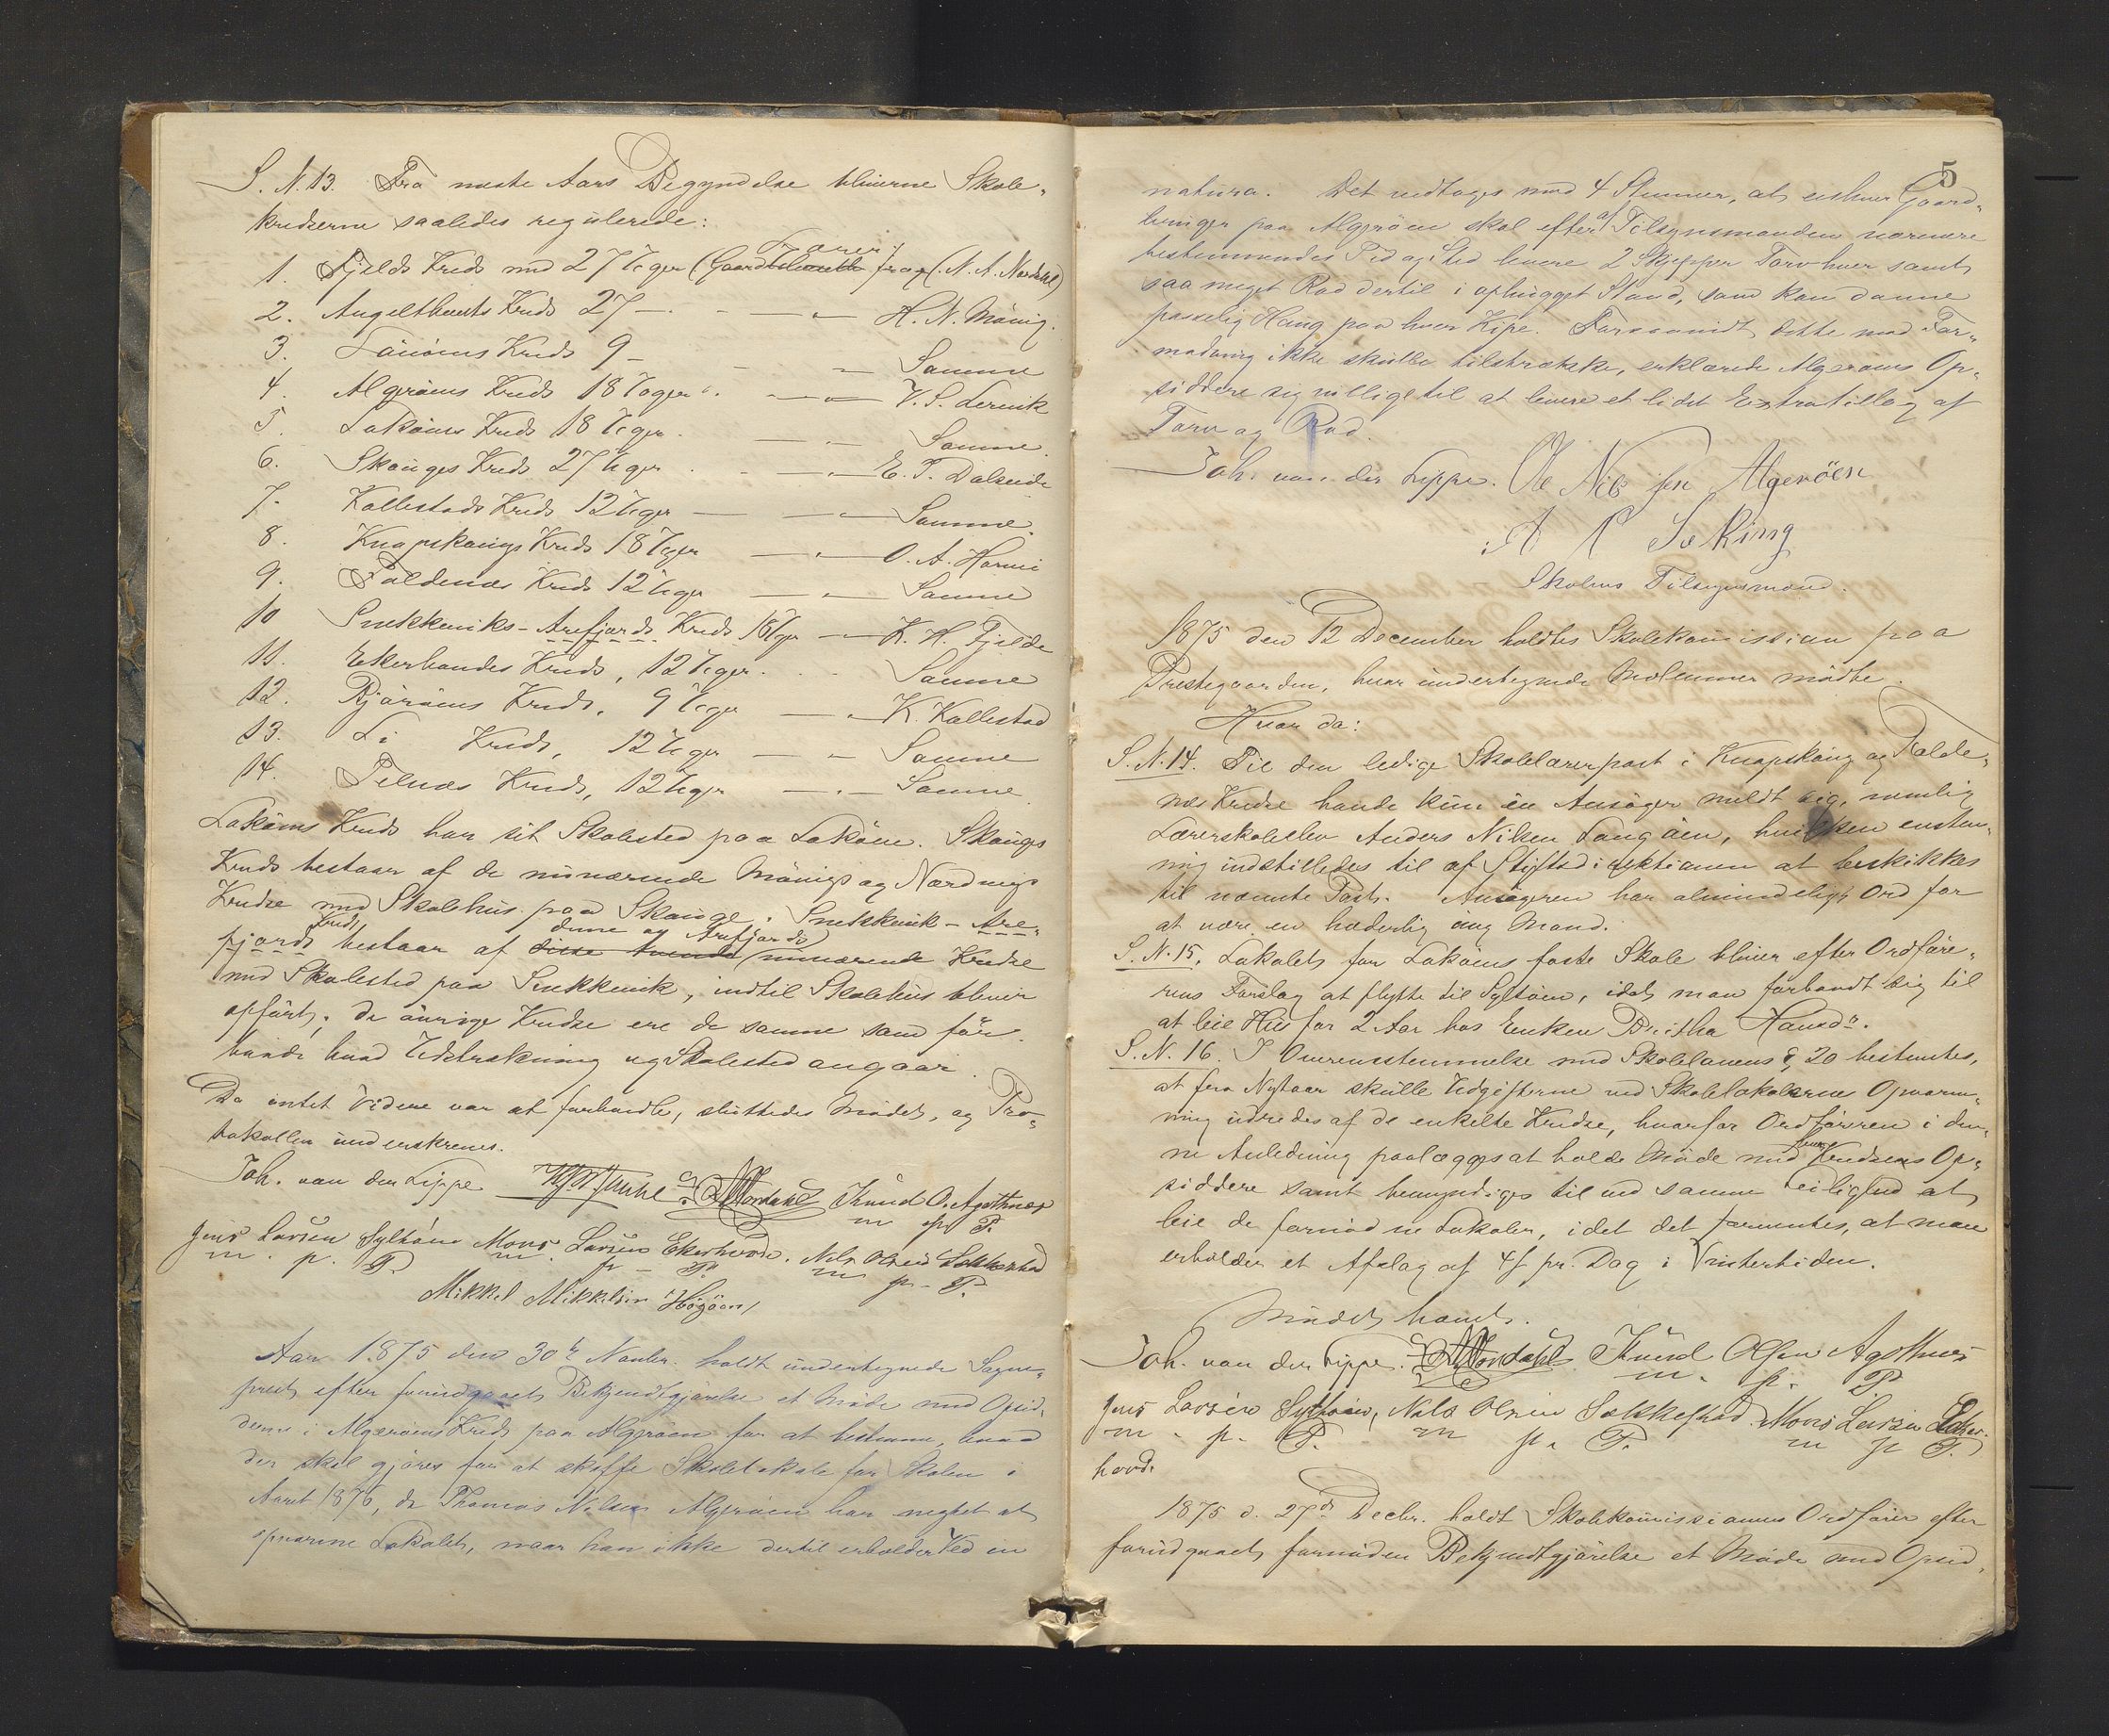 S. N. 13. Fra næste Aars Begyndelse bliverne Skole-
kredserne saaledes regulerede:
1. Fjelds Kreds med 27 Uger (N. A. Nordahl)
2. Angelthveits Kreds 27 — " — H. N. Mövig.
3. Löuöens Kreds 9 — " — Samme
4. Algeröens Kreds 18 Uger — " — Lervik
5. Loköens Kreds 18 Uger — " — Samme.
6. Skouges Kreds 27 Uger — " — E. T. Dalseide
7. Kallestads Kreds 12 Uger — " — Samme.
8. Knapskougs Kreds 18 Uger — " — O. A. Harmi
9. Foldenæs Kreds 12 Uger — " — Samme
10 Snekkeviks-Arefjords Kreds 18 Uger — " — K. H. Fjelde
11. Ekerhovdes Kreds, 12 Uger. Samme
12. Björöens Kreds, 9 Uger — " — K. Kallestad
13. Li Kreds, 12 Uger — " — Samme
14. Telnæs Kreds, 12 Uger — " — Samme.
Loköens Kreds har sit Skolested paa Loköen. Skouges
Kreds bestaar af de nuværende Mövigs og Nordvigs
Kredse med Skolehus paa Skouge. Snekkevik-Are-
fjords Kreds bestaar af disse tvende denne og Arefjords nuværende Kredse
med Skolested paa Snekkevik, indtil Skolehus bliver
opført; de øvrige Kredse ere de samme som før
baade hvad Udstrækning og Skolested angaar.
Da intet Videre var at forhandle, sluttedes Mødet, og Pro-
tokollen underskreves.
Joh. von der Lippe Nordahl Knud O. Agothnes
m p P.
Jens Larsen Syltöen Mons Larsen Ekerhovd. Nils Olsen Sekkestad
m. p. P. m p - P. m p - P.
Mikkel Mikkelsen Högöen,
Aar 1875 den 30te Novbr. holdt undertegnede Sogne-
prest efter forudgaaet Bekjendtgjørelse et Møde med Opsid-
derne i Algeröens Kreds paa Algeröen for at bestemme, hvad
der skal gjøres for at skaffe Skolelokale for Skolen i
Aaret 1876, da Thomas Nilsen Algeröen har negtet at
opvarme Lokalet, naar han ikke dertil erholder Ved in
5
natura. Det vedtoges med 4 Stemmer, at enhver Gaard-
bruger paa Algeröen skal efter af Tilsynsmanden nærmere
bestemmendes Tid og Sted levere 2 Skjepper Torv hver samt
saa meget Rod dertil i ophugget Stand, som kan danne
passelig Haug paa hver Kipe. Forsaavidt dette mod For-
modning ikke skulde tilstrække, erklærede Algeröens Op-
siddere sig villige til at levere et lidet Extratillæg af
Torv og Rod.
Joh. von der Lippe. Ole Nilssen Algeröen
A Seking
Skolens Tilsynsmand.
1875 den 12 December holdtes Skolekommission paa
Prestegaarden, hvor undertegnede Medlemmer mødte.
Hvor da:
S. N. 14. Til den ledige Skolelærerpost i Knapskoug og Folde-
næs Kredse havde kun én Ansøger meldt sig, nemlig
Lærerskoleelev Anders Nilsen Langöen, hvilken enstem-
mig indstilledes til af Stiftsdirektionen at beskikkes
til nævnte Post. Ansøgeren har almindeligt Ord for
at være en hæderlig ung Mand.
S. N. 15. Lokalet for Loköens faste Skole bliver efter Ordføre-
rens Forslag at flytte til Syltöen, idet man forbandt sig til
at leie Hus for 2 Aar hos Enken Britha Hansdr.
S. N. 16. I Overensstemmelse med Skolelovens § 20 bestemtes,
at fra Nytaar skulle Udgifterne ved Skolelokalernes Opvarm-
ning udredes af de enkelte Kredse, hvorfor Ordføreren i den-
ne Anledning paalægges at holde Møde med hver Kredses Op-
siddere samt bemyndiges til ved samme Leilighed at
leie de fornødne Lokaler, idet det formentes, at man
erholder et Afslag af 4 ſ pr. Dag i Vintertiden.
Mødet hævet.
Joh. von der Lippe. Nordahl Knud Olsen Agothnes
m. p. P
Jens Larsen Syltöen, Nils Olsen Sekkestad Mons Larsen Eker-
m. p. P. m p. P. m p P.
hovd.
1875 d. 27de Decbr. holdt Skolekommissionens Ordfører efter
forudgaaet fornøden Bekjendtgjørelse et Møde med Opsid-